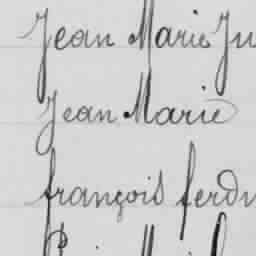 Jean Marie Ju
Jean Marie
françois ferdi